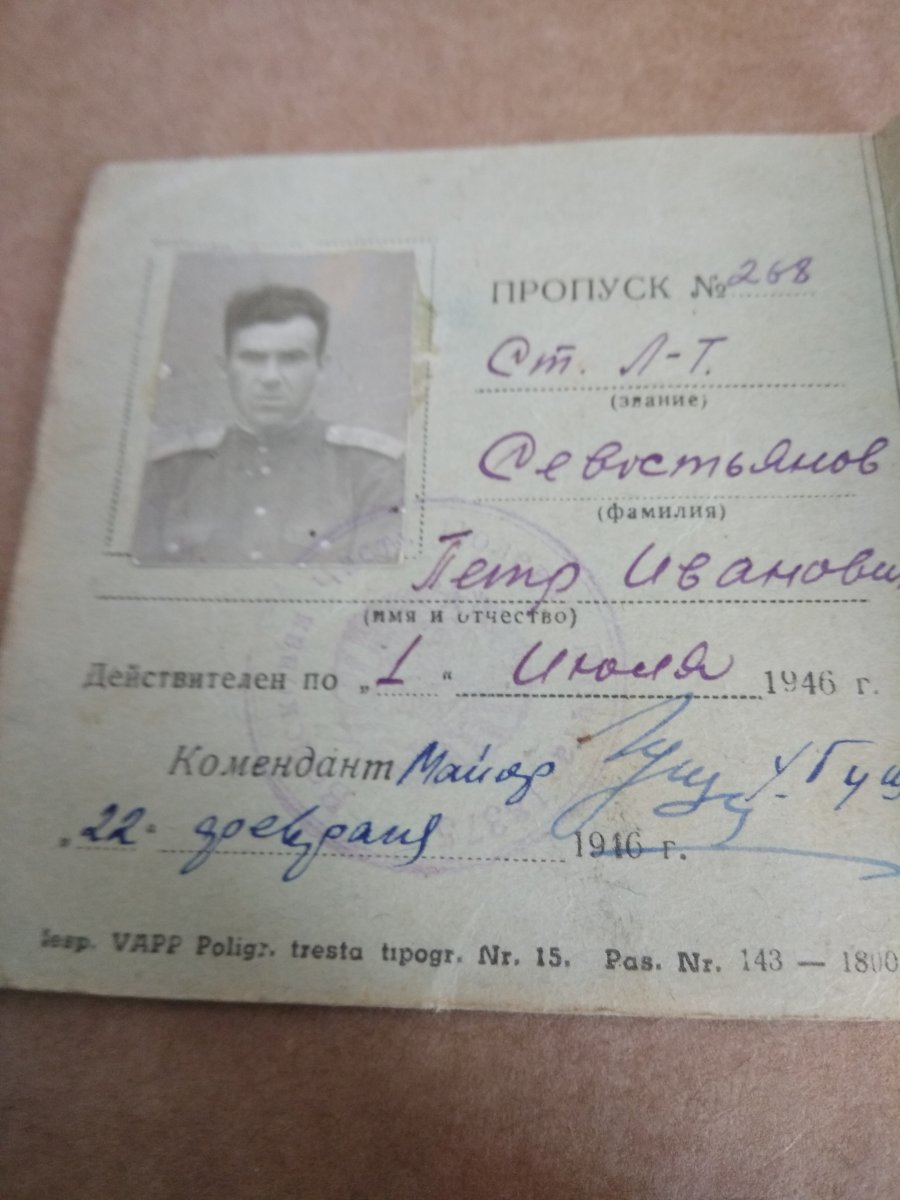 ПРОПУСК № 268
Ст. Л-т.
(звание)
Севостьянов
(фамилия)
Петр Иванович
(имя и отчество)
Действителен по „1“ Июля 1946 г.
Комендант Майор
„22“ февраля 1946 г.
VAPP Poligr. tresta tipogr. Nr. 15. Pas. Nr. 143 — 1800